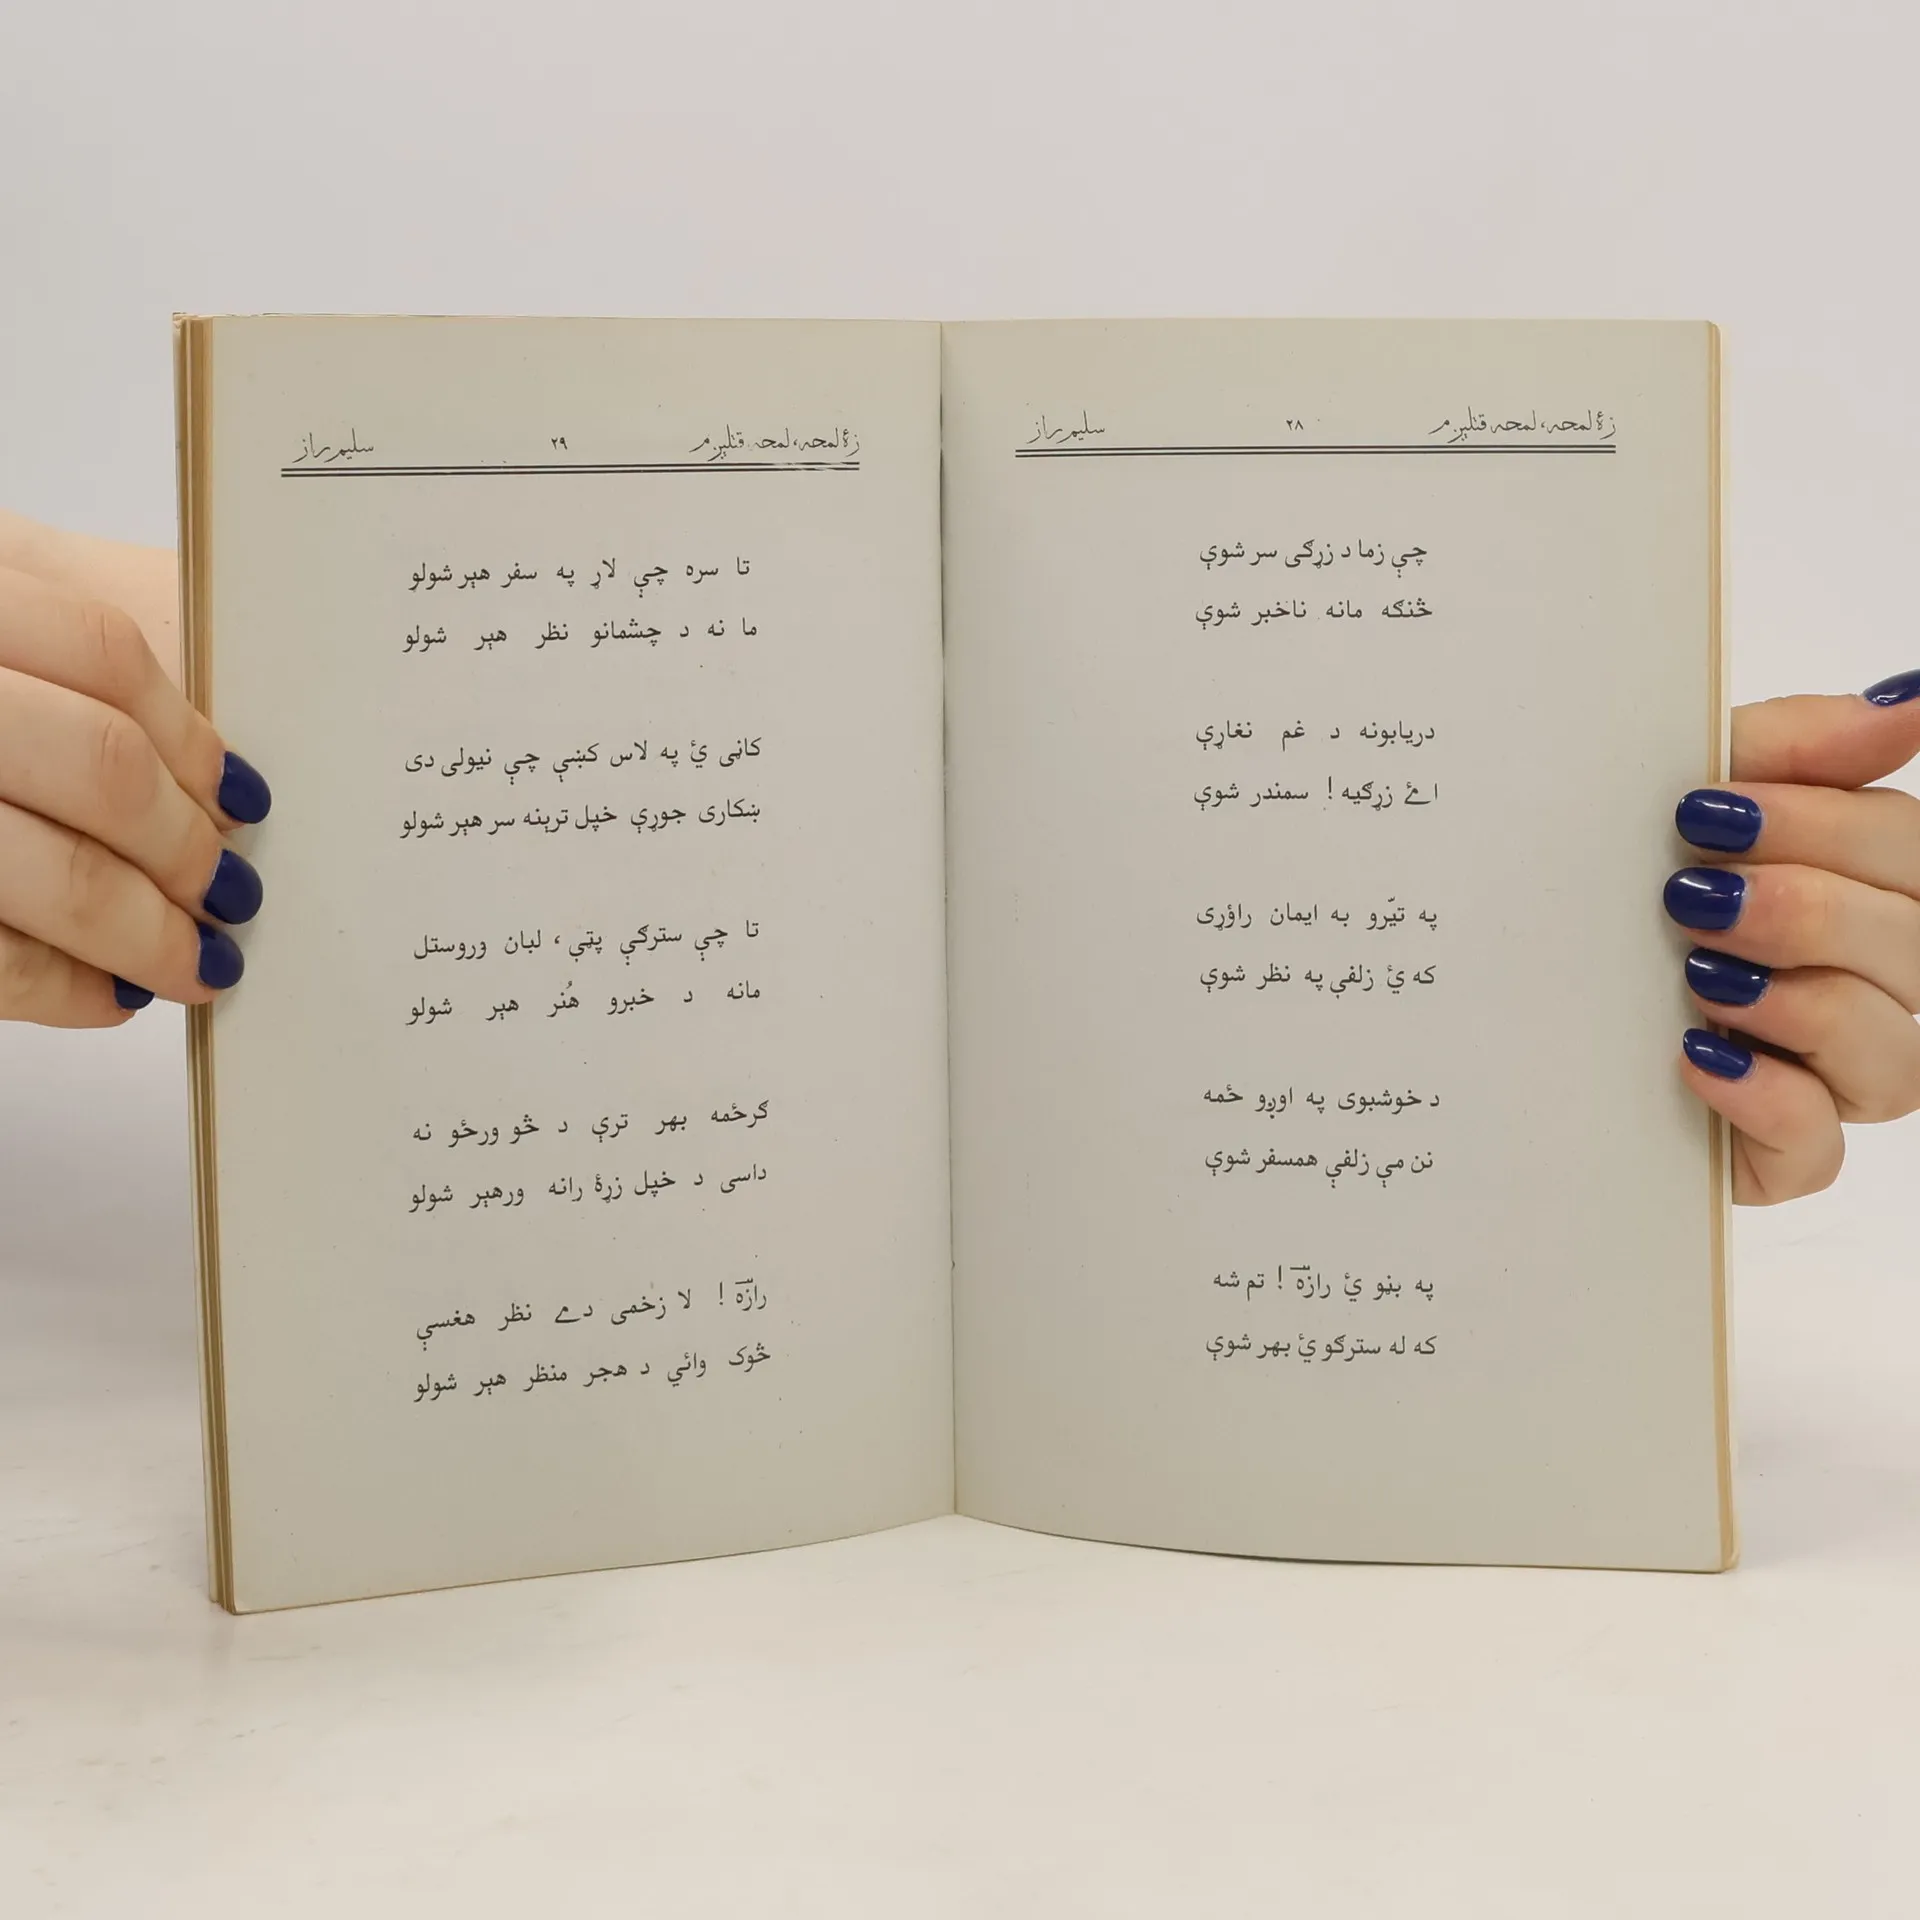 زۀ لمحه، لمحه قتلېږم ۲۸ سليم راز
چې زما د زړګی سر شوې
څنګه مانه ناخبر شوې
دريابونه د غم نغاړې
اے زړګيه ! سمندر شوې
په تيّرو به ايمان راؤړی
که ئې زلفې په نظر شوې
د خوشبوی په اوږو ځمه
نن مې زلفې همسفر شوې
په بڼو ئې رازهؔ ! تم شه
که له سترګو ئې بهر شوې
زۀ لمحه، لمحه قتلېږم ۲۹ سليم راز
تا سره چې لاړ په سفر هېر شولو
ما نه د چشمانو نظر هېر شولو
کاڼی ئې په لاس کښې چې نيولی دی
ښکاری جوړې خپل ترېنه سر هېر شولو
تا چې سترګې پټې، لبان وروستل
مانه د خبرو هُنر هېر شولو
ګرځمه بهر ترې د څو ورځو نه
داسی د خپل زړۀ رانه ورهېر شولو
رازهؔ ! لا زخمی دے نظر هغسې
څوک وائي د هجر منظر هېر شولو